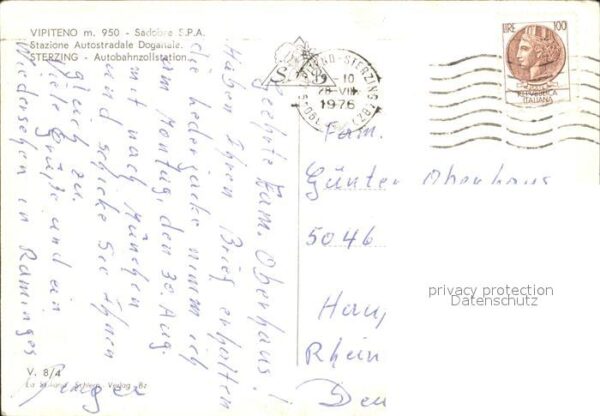 VIPITENO m. 950 - Sadobre S.P.A.
Stazione Autostradale Doganale.
STERZING - Autobahnzollstation.
LIRE 100
REPUBBLICA
ITALIANA
VIPITENO-STERZING
9-10
28 VIII
1976
Geehrte Fam. Oberhaus!
Haben Ihren Brief erhalten
die Lederjacke nimm ich
am Montag, den 30. Aug.
mit nach München
und schicke sie Ihnen
gleich zu.
Viele Grüße und ein
Wiedersehen in Ramingas
Fam.
Günter Oberhaus
5046
Rhein
privacy protection
Datenschutz
V. 8/4
Verlag - Bz